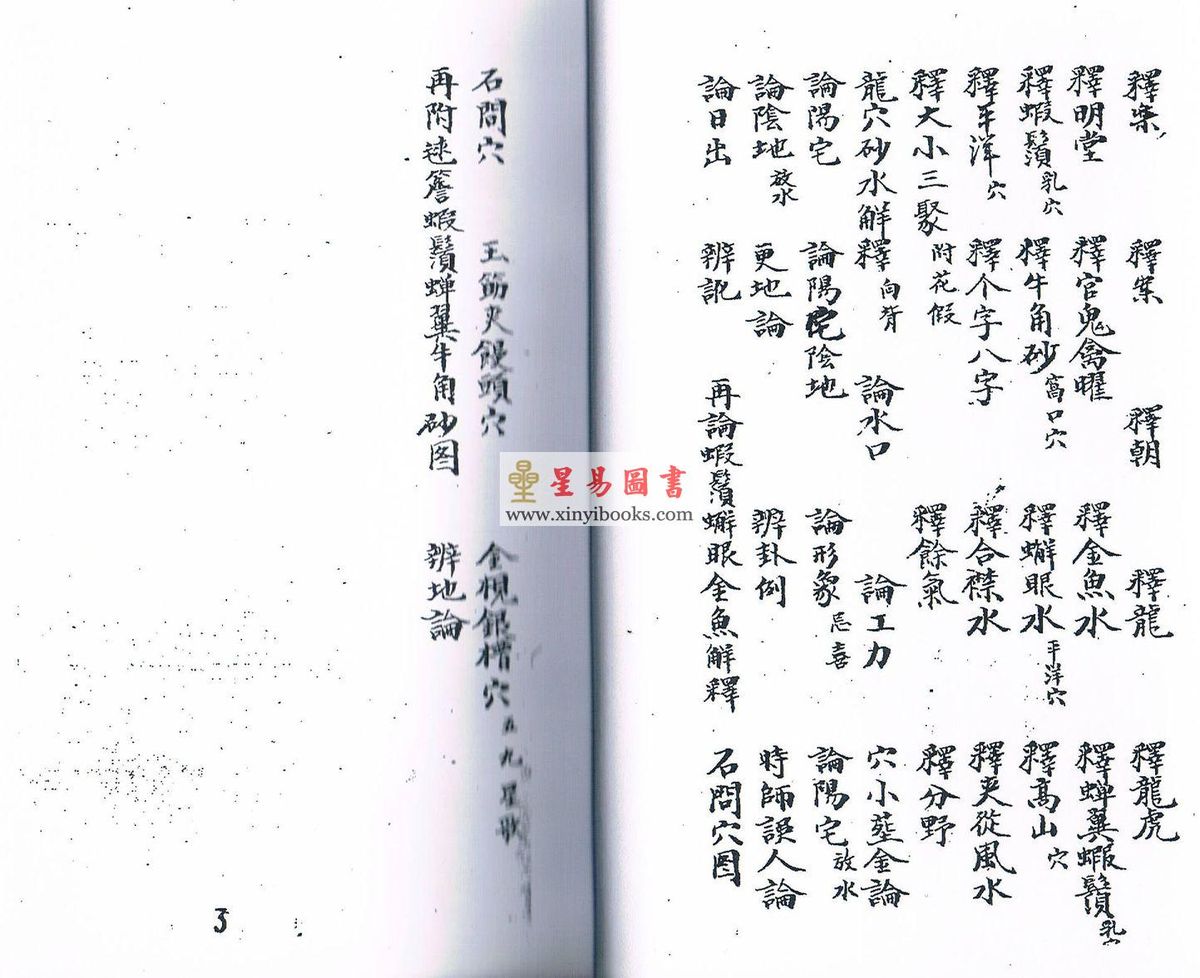 釋案 釋案 釋朝 釋龍 釋龍虎
釋明堂 釋官鬼禽曜 釋金魚水 釋蟬翼蝦鬚乳穴
釋蝦鬚乳穴 釋牛角砂窩口穴 釋蠏眼水平洋穴 釋高山穴
釋平洋穴 釋个字八字 釋合襟水 釋夾從風水
釋大小三聚附花假 釋餘氣 釋分野
龍穴砂水解釋向背 論水口 論工力 穴小塟金論
論陽宅 論陽陀陰地 論形象忌喜 論陽宅放水
論陰地放水 更地論 辨卦例 時師誤人論
論日出 辨訛 再論蝦鬚蠏眼金魚解釋 石問穴图
石問穴 玉筯夾饅頭穴 金梘銀槽穴 五九星歌
再附毬簷蝦鬚蟬翼牛角砂图 辨地論
3
星易圖書
www.xinyibooks.com